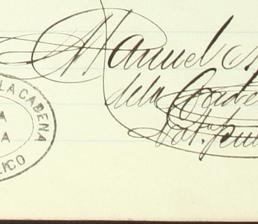 Manuel M
de la Cade
Not. pu
LA CADENA
A
A
LICO